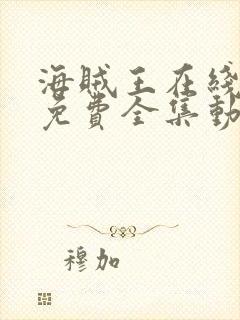 海贼王在綫
免費全集動
穆加